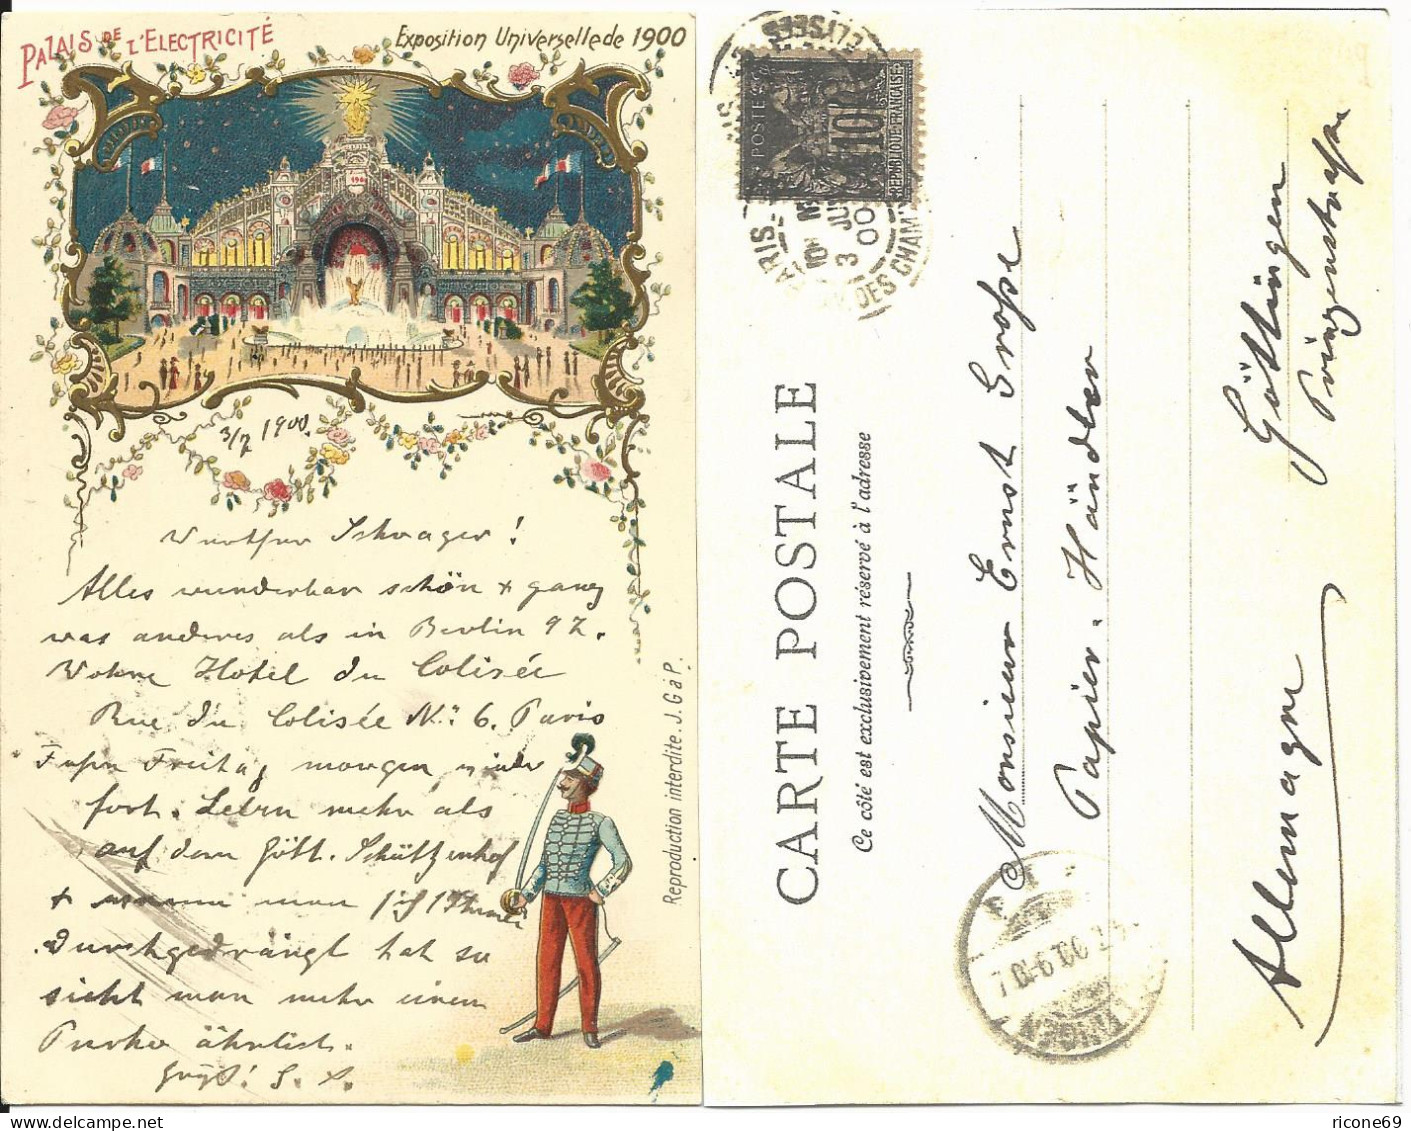 PALAIS DE L'ELECTRICITÉ
Exposition Universelle de 1900
1900
3/7 1900.
Werther Schwager!
Alles wunderbar schön + ganz
was anderes als in Berlin 97.
Wohne Hotel du Colisée
Rue du Colisée No: 6. Paris
Freitag morgen wieder
fort. mehr als
auf dem Gött. Schützenhof
+ wenn man 1/2 Mal
Durchgedrängt hat so
sieht man mehr einem
ähnlich.
Gruß!
Reproduction interdite. J. G à P.
POSTES
10
REPUBLIQUE FRANÇAISE
PARIS
3
JUIL
00
DES CHAMPS
ELYSEES
CARTE POSTALE
Ce côté est exclusivement réservé à l'adresse
Monsieur Ernst Grosse
Papier-Händler
Göttingen
Prinzenstrasse
Allemagne
ricone69